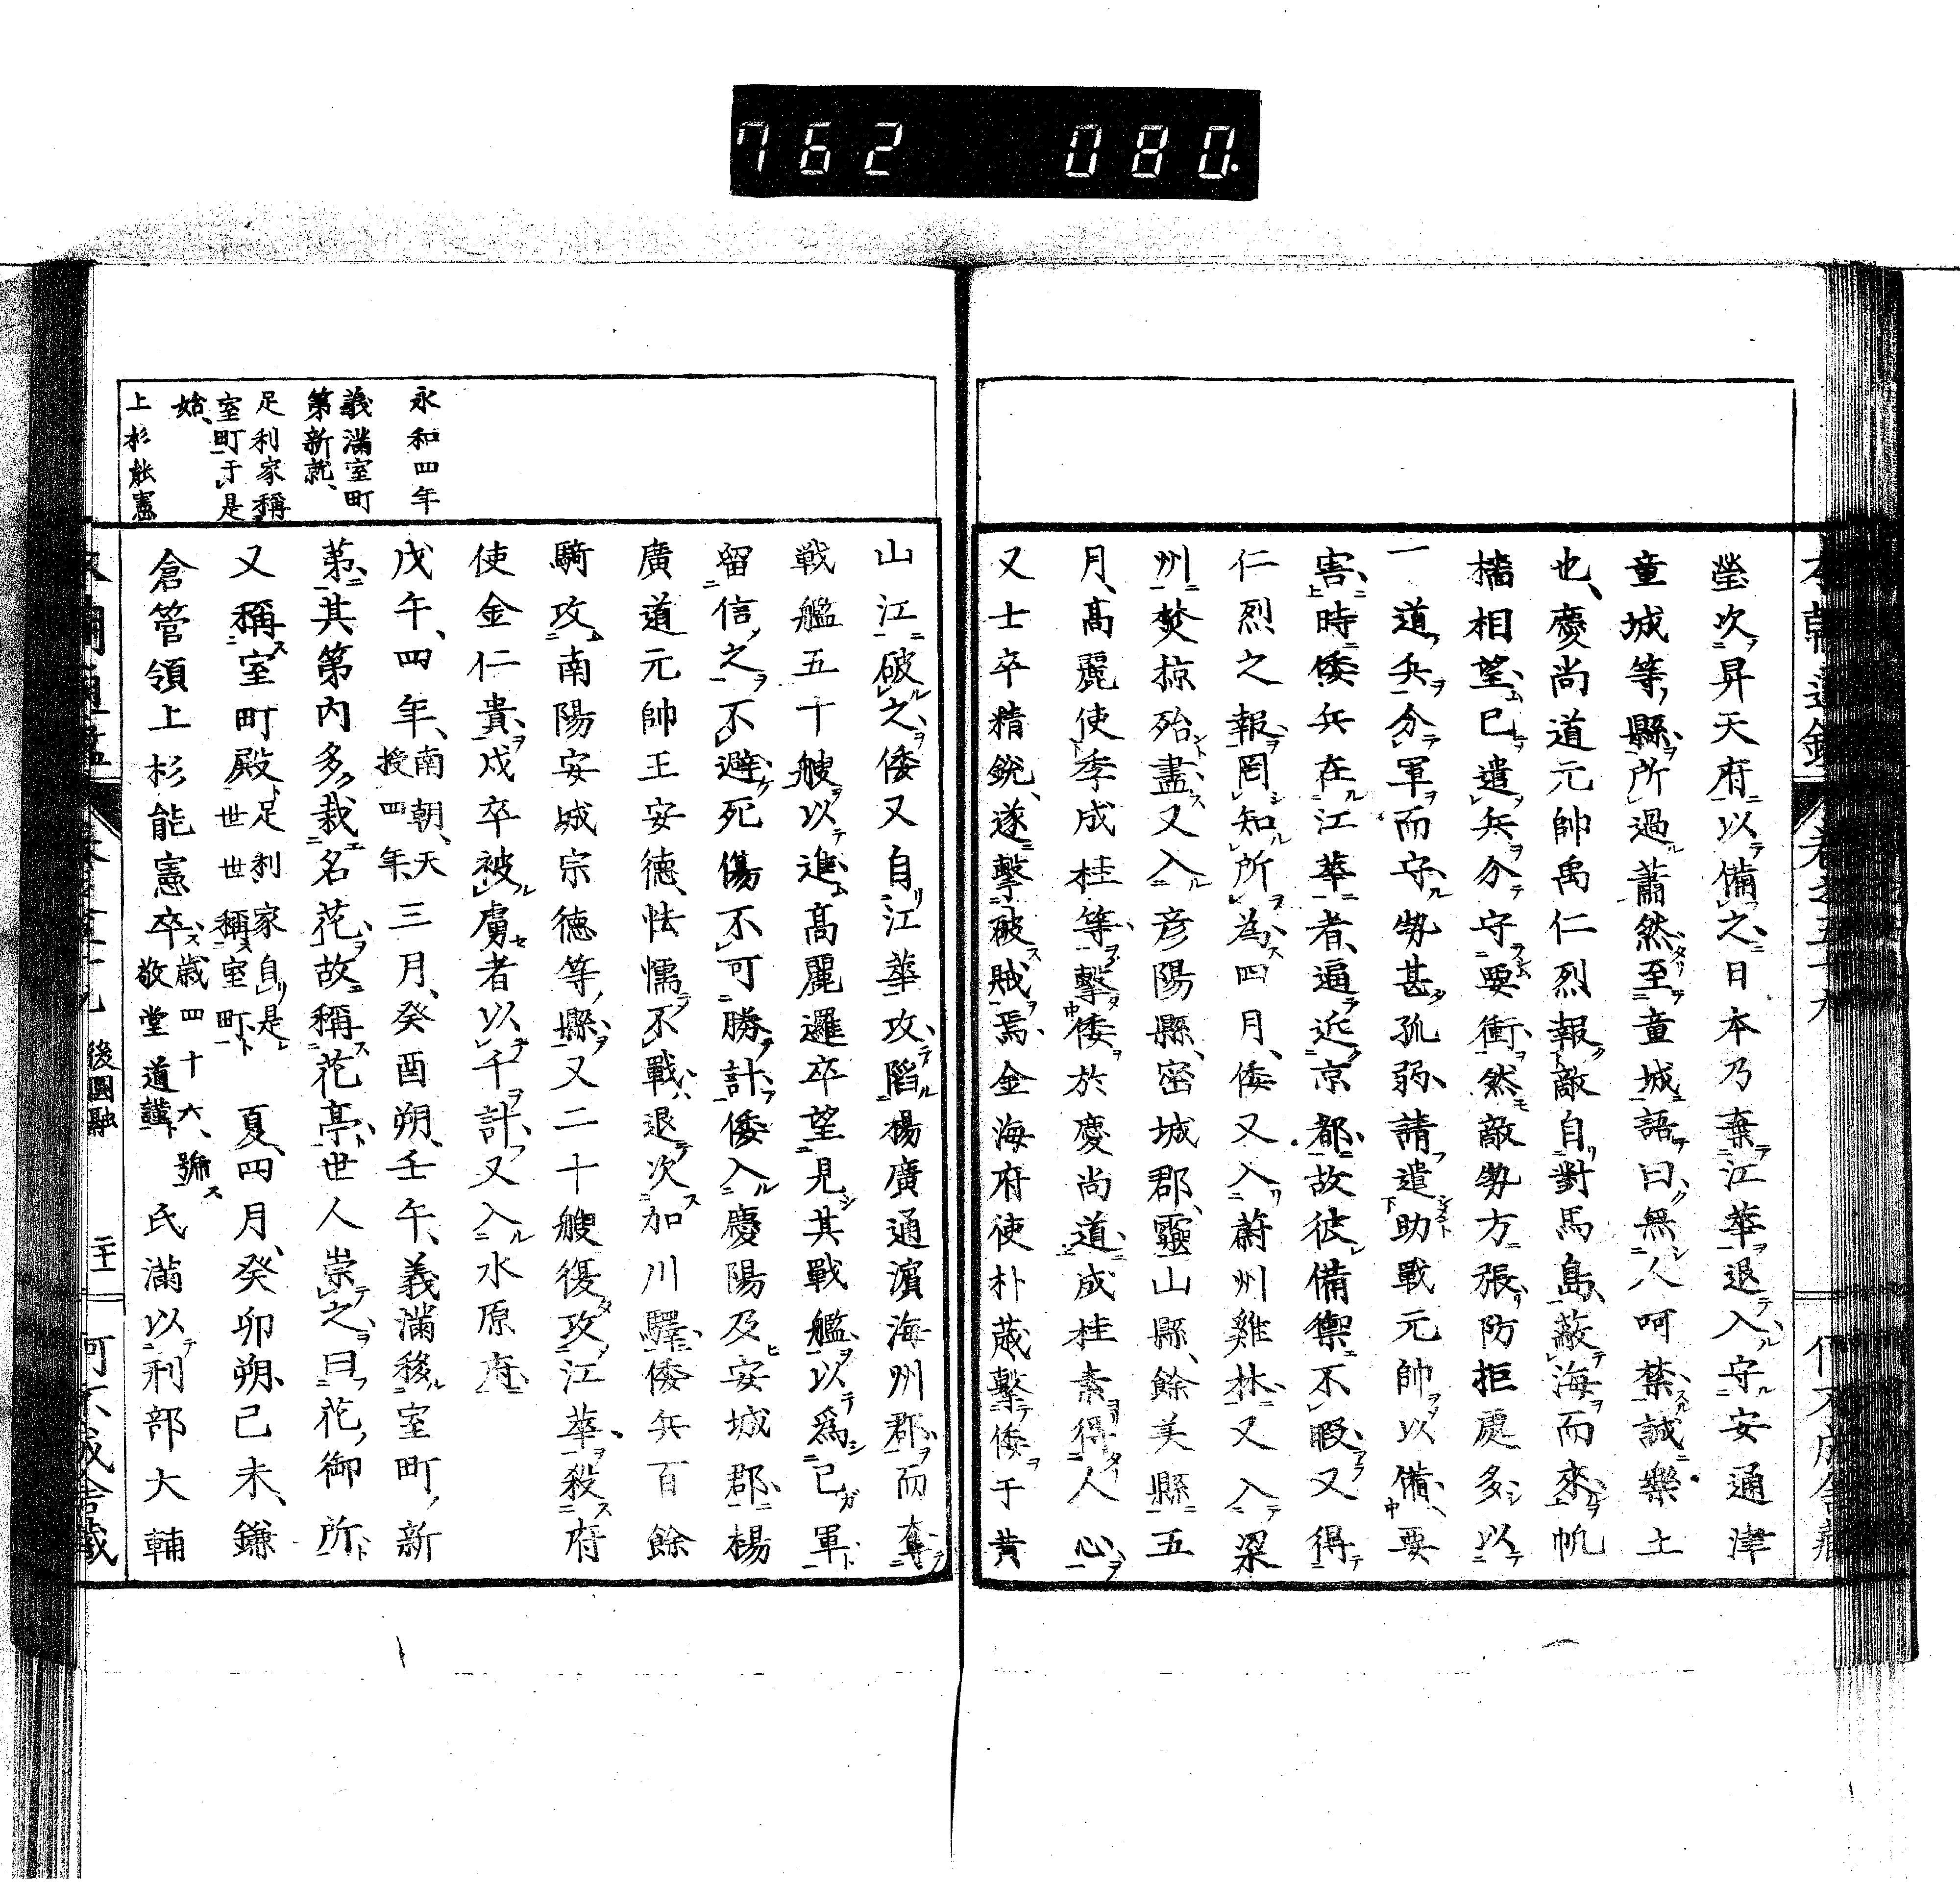 762 080.
瑩次昇天府以備之日本乃棄江華退入守安通津
童城等縣所過蕭然至童城語曰無人呵禁誠樂土
也慶尚道元帥禹仁烈報敵自對馬島蔽海而來帆
檣相望已遣兵分守要衝然敵勢方張防拒處多以
一道兵分軍而守勢甚孤弱請遣助戰元帥以備要
害時倭兵在江華者逼近京都故彼備禦不暇又得
仁烈之報罔知所為四月倭又入蔚州雞林又入梁
州焚掠殆盡又入彦陽縣密城郡靈山縣餘美縣五
月高麗使李成桂等擊倭於慶尚道成桂素得人心
又士卒精銳遂擊破賊焉金海府使朴葳擊倭于黄
山江破之倭又自江華攻陷楊廣通濱海州郡而奪
戰艦五十艘以進高麗邏卒望見其戰艦以爲己軍
留信之不避死傷不可勝計倭入慶陽及安城郡楊
廣道元帥王安德怯懦不戰退次加川驛倭兵百餘
騎攻南陽安城宗德等縣又二十艘復攻江華殺府
使金仁貴戍卒被虜者以千計又入水原府
永和四年
戊午四年南朝天授四年三月癸酉朔壬午義滿移室町新
義滿室町
第新就
第其第内多栽名花故稱花亭世人崇之曰花御所
足利家稱
室町于是
始
又稱室町殿足利家自是世世稱室町夏四月癸卯朔己未鎌
上杉能憲
倉管領上杉能憲卒歳四十六號敬堂道諲氏滿以刑部大輔
後圓融
二十一